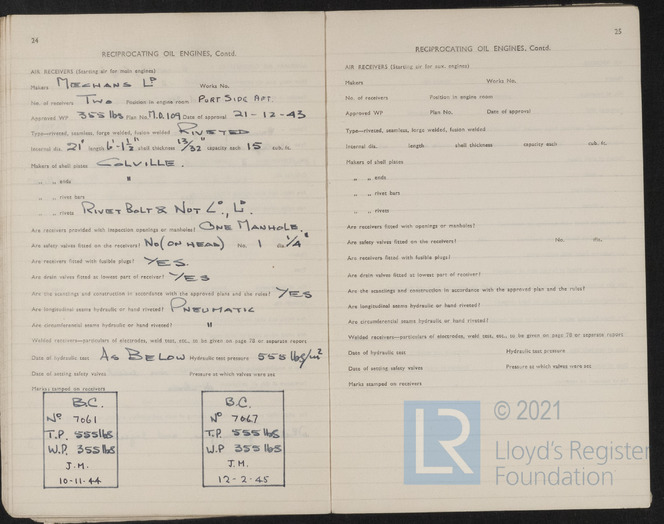 24
RECIPROCATING OIL ENGINES, Contd.
AIR RECEIVERS (Starting air for main engines)
Makers MECHANS Lᴰ Works No.
No. of receivers TWO Position in engine room PORT SIDE AFT.
Approved WP 355 lbs Plan No. M.D.109 Date of approval 21-12-43
Type—riveted, seamless, forge welded, fusion welded RIVETED
Internal dia. 21" length 6'-1½" shell thickness 13/32" capacity each 15 cub. ft.
Makers of shell plates COLVILLE.
„ „ ends "
„ „ rivet bars
„ „ rivets RIVET BOLT & NUT Cº., Lᴰ.
Are receivers provided with inspection openings or manholes? ONE MANHOLE.
Are safety valves fitted on the receivers? No (ON HEAD) No. 1 dia 1¼"
Are receivers fitted with fusible plugs? YES.
Are drain valves fitted at lowest part of receiver? YES
Are the scantlings and construction in accordance with the approved plans and the rules? YES
Are longitudinal seams hydraulic or hand riveted? PNEUMATIC
Are circumferential seams hydraulic or hand riveted? "
Welded receivers—particulars of electrodes, weld test, etc., to be given on page 78 or separate report
Date of hydraulic test AS BELOW Hydraulic test pressure 555 lbs/in²
Date of setting safety valves Pressure at which valves were set
Marks stamped on receivers
B.C.
Nº 7061
T.P. 555 lbs
W.P. 355 lbs
J.M.
10-11-44
B.C.
Nº 7067
T.P. 555 lbs
W.P 355 lbs
J.M.
12-2-45
25
RECIPROCATING OIL ENGINES, Contd.
AIR RECEIVERS (Starting air for aux. engines)
Makers Works No.
No. of receivers Position in engine room
Approved WP Plan No. Date of approval
Type—riveted, seamless, forge welded, fusion welded
Internal dia. length shell thickness capacity each cub. ft.
Makers of shell plates
„ „ ends
„ „ rivet bars
„ „ rivets
Are receivers fitted with openings or manholes?
Are safety valves fitted on the receivers? No. dia.
Are receivers fitted with fusible plugs?
Are drain valves fitted at lowest part of receiver?
Are the scantlings and construction in accordance with the approved plans and the rules?
Are longitudinal seams hydraulic or hand riveted?
Are circumferential seams hydraulic or hand riveted?
Welded receivers—particulars of electrodes, weld test, etc., to be given on page 78 or separate report
Date of hydraulic test Hydraulic test pressure
Date of setting safety valves Pressure at which valves were set
Marks stamped on receivers
LR
© 2021
Lloyd's Register
Foundation